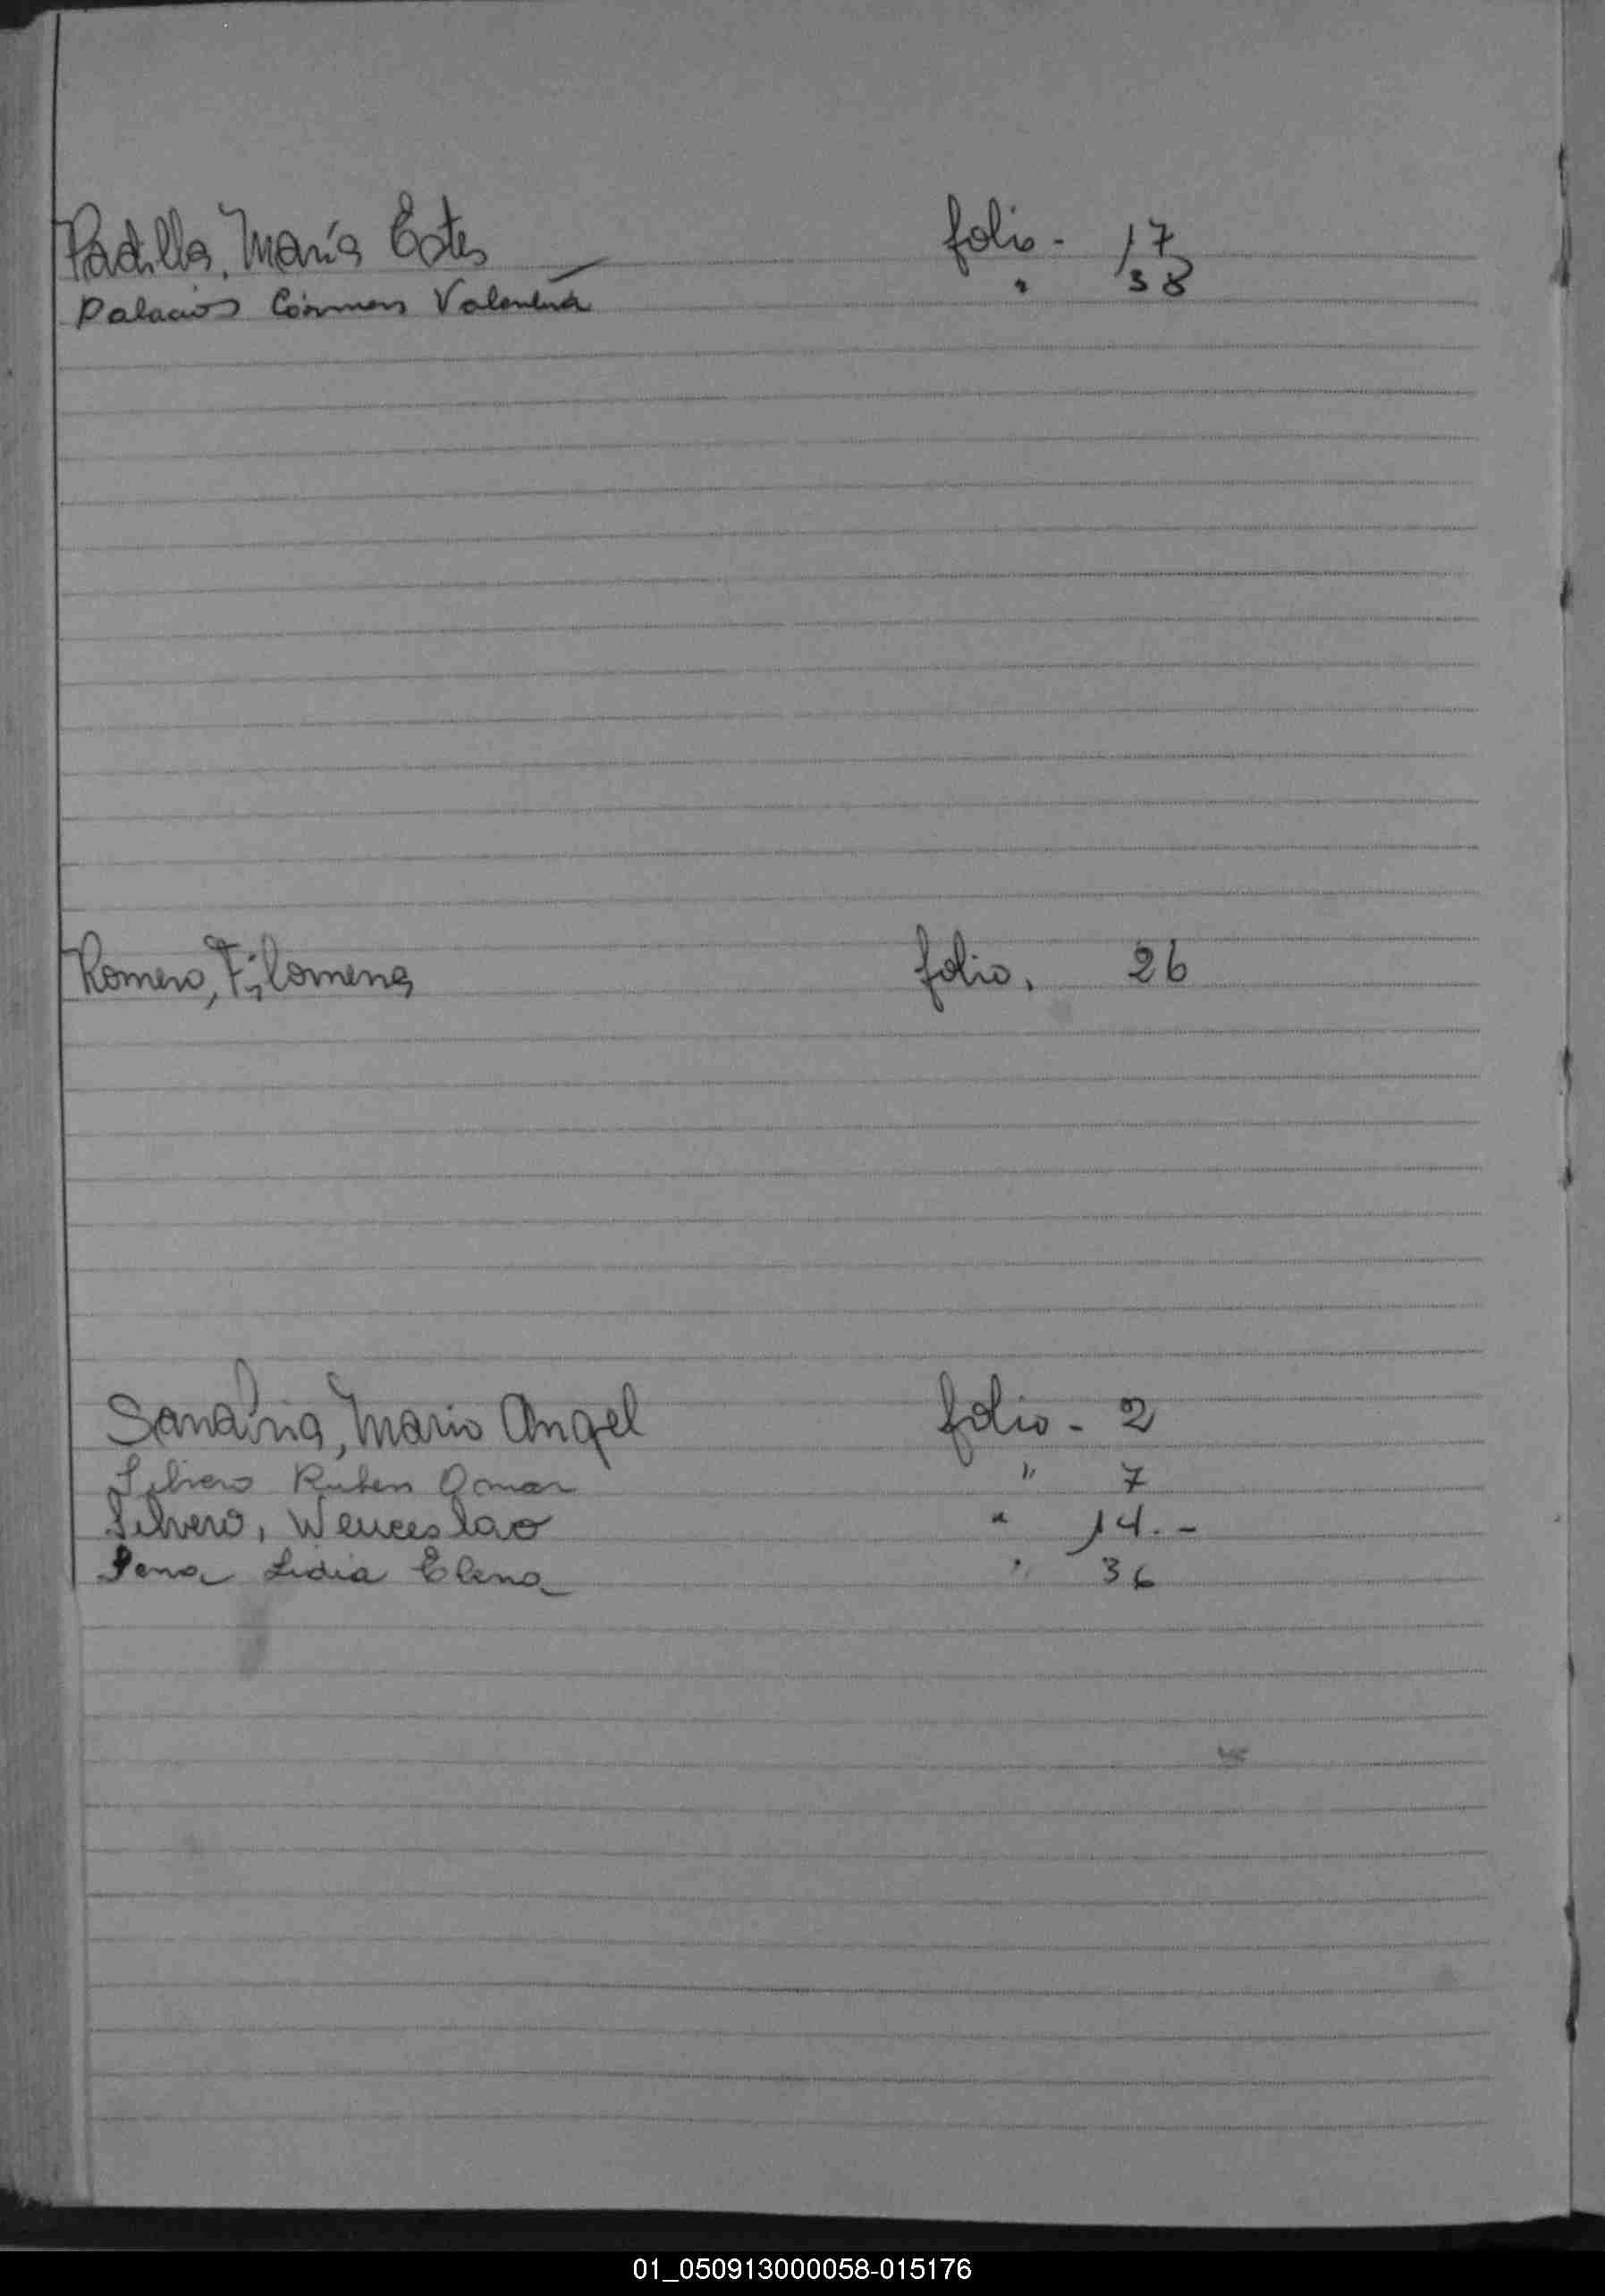 Padilla, María Ester folio - 17
Palacios Cármen Valentina " 38
Romero, Filomena folio. 26
Sanabria, Mario Angel folio - 2
Silvero Ruben Omar " 7
Silvero, Wenceslao " 14.-
Sena Lidia Elena " 36
01_050913000058-015176